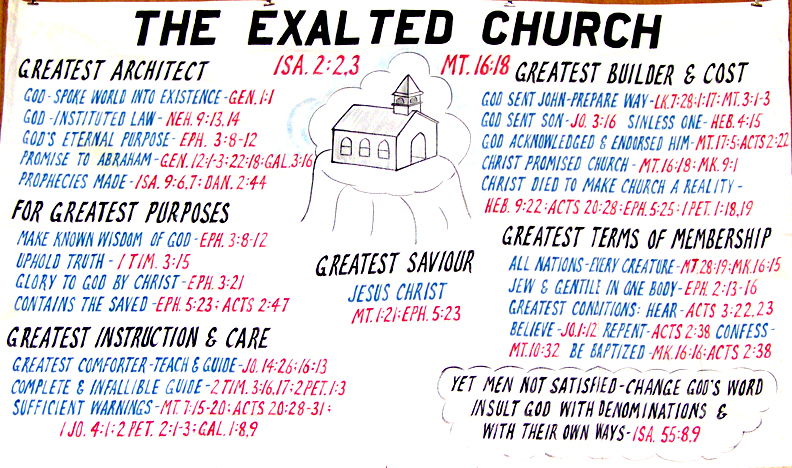 THE EXALTED CHURCH
ISA. 2:2,3
MT. 16:18
GREATEST ARCHITECT
GOD-SPOKE WORLD INTO EXISTENCE-GEN. 1:1
GOD-INSTITUTED LAW-NEH. 9:13,14
GOD'S ETERNAL PURPOSE-EPH. 3:8-12
PROMISE TO ABRAHAM-GEN. 12:1-3:22:18:GAL. 3:16
PROPHECIES MADE-ISA. 9:6,7:DAN. 2:44
FOR GREATEST PURPOSES
MAKE KNOWN WISDOM OF GOD-EPH. 3:8-12
UPHOLD TRUTH-1 TIM. 3:15
GLORY TO GOD BY CHRIST-EPH. 3:21
CONTAINS THE SAVED-EPH. 5:23:ACTS 2:47
GREATEST INSTRUCTION & CARE
GREATEST COMFORTER-TEACH & GUIDE-JO. 14:26:16:13
COMPLETE & INFALLIBLE GUIDE-2 TIM. 3:16,17:2 PET. 1:3
SUFFICIENT WARNINGS-MT. 7:15-20:ACTS 20:28-31:
1 JO. 4:1:2 PET. 2:1-3:GAL. 1:8,9
GREATEST SAVIOUR
JESUS CHRIST
MT. 1:21:EPH. 5:23
GREATEST BUILDER & COST
GOD SENT JOHN-PREPARE WAY-LK. 7:28:1:17:MT. 3:1-3
GOD SENT SON-JO. 3:16 SINLESS ONE-HEB. 4:15
GOD ACKNOWLEDGED & ENDORSED HIM-MT. 17:5:ACTS 2:22
CHRIST PROMISED CHURCH-MT. 16:18:MK. 9:1
CHRIST DIED TO MAKE CHURCH A REALITY-
HEB. 9:22:ACTS 20:28:EPH. 5:25:1 PET. 1:18,19
GREATEST TERMS OF MEMBERSHIP
ALL NATIONS-EVERY CREATURE-MT. 28:19:MK. 16:15
JEW & GENTILE IN ONE BODY-EPH. 2:13-16
GREATEST CONDITIONS: HEAR-ACTS 3:22,23
BELIEVE-JO. 1:12 REPENT-ACTS 2:38 CONFESS-
MT. 10:32 BE BAPTIZED-MK. 16:16:ACTS 2:38
YET MEN NOT SATISFIED-CHANGE GOD'S WORD
INSULT GOD WITH DENOMINATIONS &
WITH THEIR OWN WAYS-ISA. 55:8,9